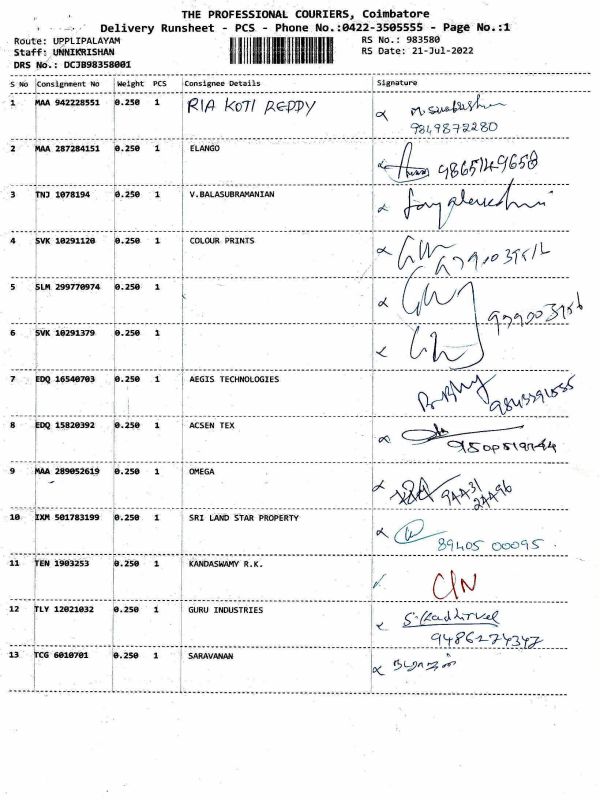 THE PROFESSIONAL COURIERS, Coimbatore
Delivery Runsheet - PCS - Phone No.:0422-3505555 - Page No.:1
Route: UPPLIPALAYAM RS No.: 983580
Staff: UNNIKRISHAN RS Date: 21-Jul-2022
DRS No.: DCJB98358001
S No Consignment No Weight PCS Consignee Details Signature
1 MAA 942228551 0.250 1 RIA KOTI REDDY
9849872280
2 MAA 287284151 0.250 1 ELANGO 9865149658
3 TNJ 1078194 0.250 1 V.BALASUBRAMANIAN
4 SVK 10291120 0.250 1 COLOUR PRINTS
5 SLM 299770974 0.250 1
6 SVK 10291379 0.250 1
7 EDQ 16540703 0.250 1 AEGIS TECHNOLOGIES
8 EDQ 15820392 0.250 1 ACSEN TEX
9 MAA 289052619 0.250 1 OMEGA 94431
24496
10 IXM 501783199 0.250 1 SRI LAND STAR PROPERTY
89405 00095
11 TEN 1903253 0.250 1 KANDASWAMY R.K.
12 TLY 12021032 0.250 1 GURU INDUSTRIES S. Kadhirvel
9486274347
13 TCG 6010701 0.250 1 SARAVANAN